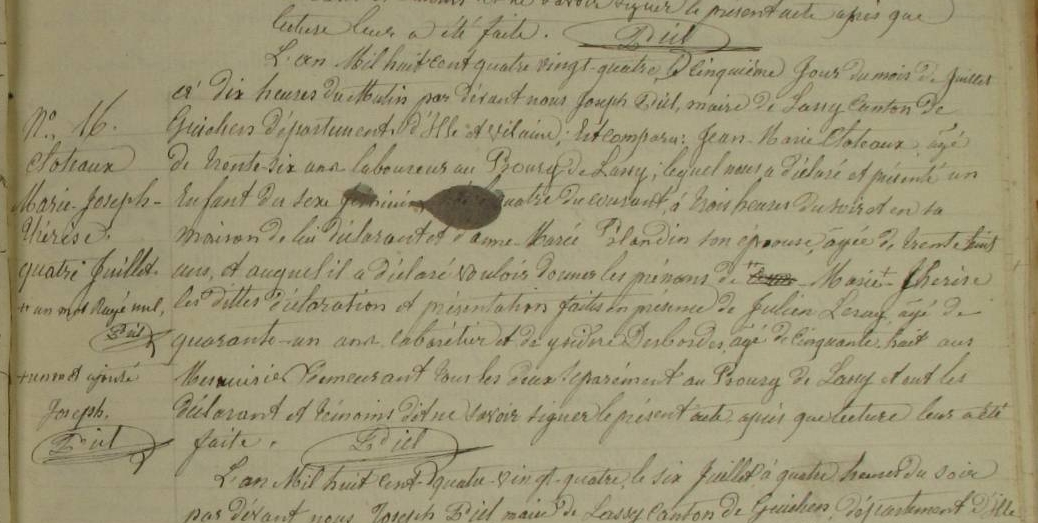 le présent acte après que
lecture leur a été faite. Piel
L'an Mil huit cent quatre vingt-quatre le cinquième Jour du mois de Juillet
à dix heures du Matin par dévant nous Joseph Piel, maire de Lassy Canton de
Guichen département d'Ille et vilaine; Est comparu: Jean-Marie Cloteaux âgé
de trente-six ans laboureur au Bourg de Lassy; lequel nous a déclaré et présenté un
Enfant du sexe féminin quatre du courant, à trois heures du soir et en sa
maison de lui déclarant et d'anne Marie Blandin son epouse, âgée de trente huit
ans, et auquel il a déclaré vouloir donner les prénoms de Marie + Thérèse
les dittes déclaration et présentation faites en presence de Julien Leray, âgé de
quarante-un ans cabarétier et de ysidore Desbordes, âgé de cinquante huit ans
Menuisier demeurant tous les deux séparément au Bourg de Lassy et ont les
déclarant et témoins dit ne savoir signer le présent acte après que lecture leur a été
faite. Piel
N°. 16.
Cloteaux
Marie-Joseph-
Thérèse.
quatre Juillet.
+ un mot Rayé nul,
Piel
+ un mot ajouté
Joseph.
Piel
L'an Mil huit cent quatre-vingt-quatre, le six Juillet à quatre heures du soir
par dévant nous Joseph Piel maire de Lassy Canton de Guichen, département d'Ille